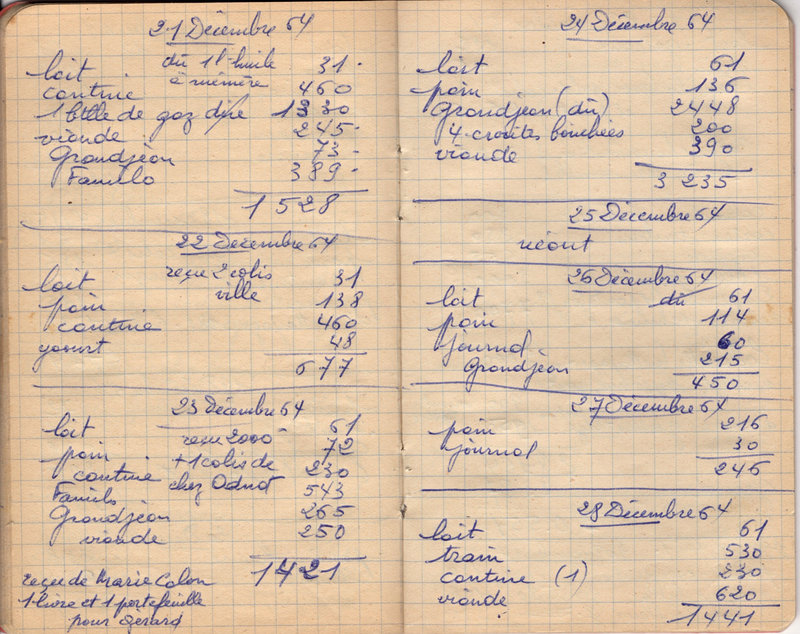 21 Décembre 64
lait dû 1 l huile 31
cantine à mémère 460
1 btlle de gaz dûe 1330
viande 245
Grandjean 73
Familo 389
1 528
22 Décembre 64
lait reçu 2 colis 31
pain ville 138
cantine 460
yaourt 48
677
23 Décembre 64
lait reçu 2000 61
pain + 1 colis de 72
cantine chez Odnot 230
Familo 543
Grandjean 265
viande 250
1421
reçu de Marie Colon
1 livre et 1 portefeuille
pour Gérard
24 Décembre 64
lait 61
pain 136
Grandjean (dû) 2448
4 croutes bouchées 200
viande 390
3 235
25 Décembre 64
néant
26 Décembre 64
lait dû 61
pain 114
journal 60
Grandjean 215
450
27 Décembre 64
pain 216
journal 30
246
28 Décembre 64
lait 61
train 530
cantine (1) 230
viande 620
1441